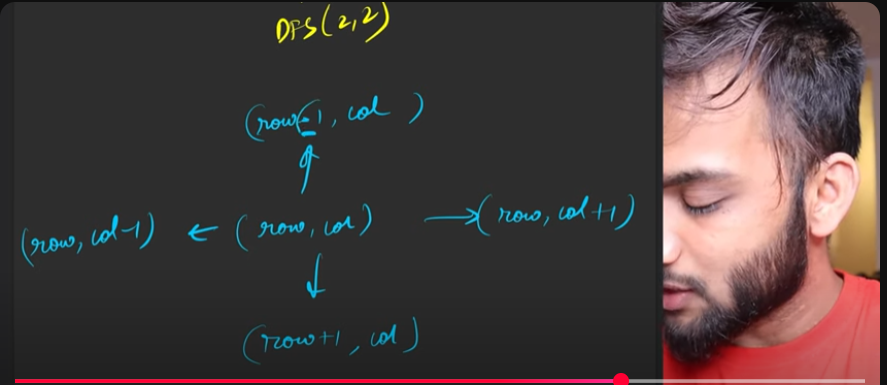 DFS(2,2)
(row-1, col)
(row, col-1) ← (row, col) → (row, col+1)
(row+1, col)